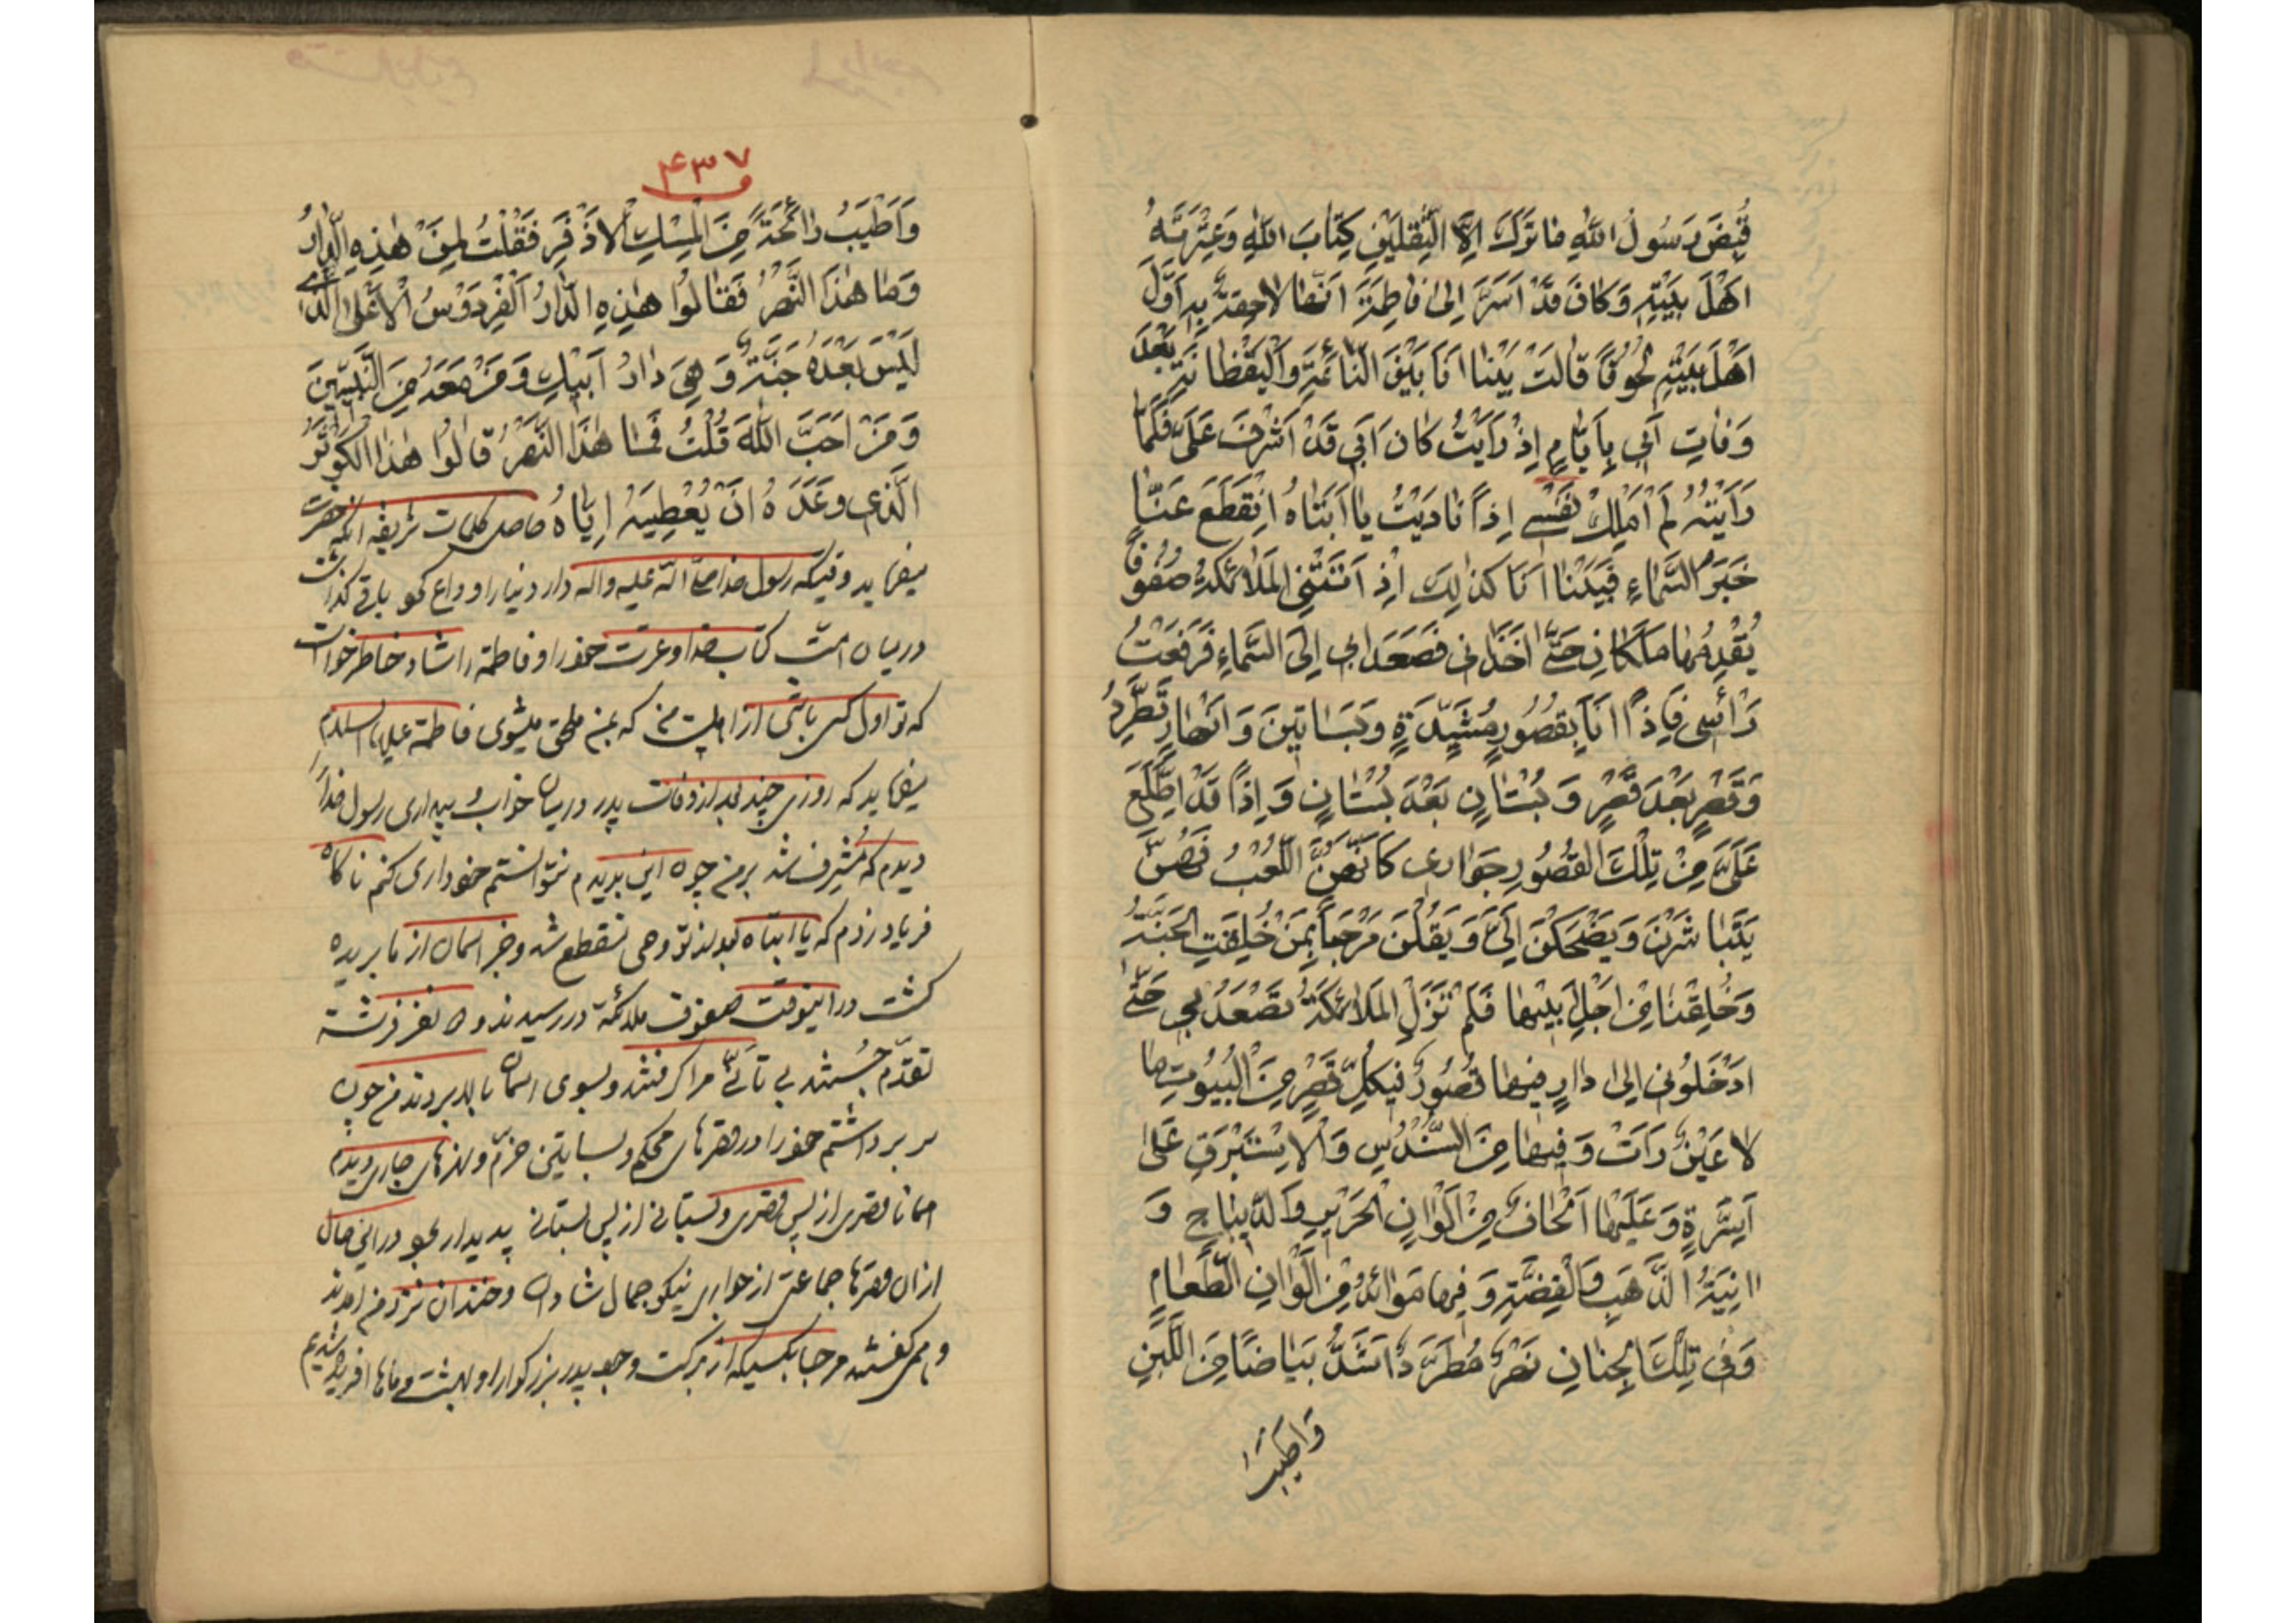 قُبِضَ رَسُولُ اللهِ مَا تَرَكَ اِلَّا الثَّقَلَيْنِ كِتَابَ اللهِ وَعِتْرَتَهُ
اَهْلَ بَيْتِهِ وَكَانَ قَدْ اَسَرَّ اِلىٰ فَاطِمَةَ اَنَّهَا لَاحِقَةٌ بِهِ اَوَّلَ
اَهْلِ بَيْتِهِ لُحُوقًا قَالَتْ بَيْنَا اَنَا بَيْنَ النَّائِمَةِ وَالْيَقْظَانَةِ بَعْدَ
وَفَاتِ اَبِي بِاَيَّامٍ اِذْ رَاَيْتُ كَانَ اَبِي قَدْ اَشْرَفَ عَلَىَّ فَلَمَّا
رَاَيْتُهُ لَمْ اَمْلِكْ نَفْسِي اِذًا نَادَيْتُ يَا اَبَتَاهُ اِنْقَطَعَ عَنَّا
خَبَرُ السَّمَاءِ فَبَيْنَا اَنَا كَذٰلِكَ اِذْ اَتَتْنِى الْمَلَائِكَةُ صُفُوفًا
يُقْدِمُهَا مَلَكَانِ حَتَّى اَخَذَانِى فَصَعَدَا بِى اِلَى السَّمَاءِ فَرَفَعْتُ
رَاْسِى فَاِذًا اَنَا بِقُصُورٍ مُشَيَّدَةٍ وَبَسَاتِينَ وَاَنْهَارٍ تَطَّرِدُ
وَقَصْرٍ بَعْدَ قَصْرٍ وَ بُسْتَانٍ بَعْدَ بُسْتَانٍ وَاِذًا قَدْ اِطَّلَعَ
عَلَىَّ مِنْ تِلْكَ الْقُصُورِ جَوَارِى كَاَنَّهُنَّ اللُّعَبُ فَهُنَّ
يَتَبَاشَرْنَ وَيَضْحَكْنَ اِلَىَّ وَيَقُلْنَ مَرْحَبًا بِمَنْ خُلِقَتِ الْجَنَّةُ
وَخُلِقْنَا مِنْ اَجْلِ اَبِيهَا فَلَمْ تَزَلِ الْمَلَائِكَةُ تَصْعَدُ بِى حَتَّى
اَدْخَلُونِى اِلىٰ دَارٍ فِيهَا قُصُورٌ فِيكُلِّ قَصْرٍ مِنَ الْبُيُوتِ مَا
لَا عَيْنٌ رَاَتْ وَفِيهَا مِنَ السُّنْدُسِ وَالْاِسْتَبْرَقِ عَلىٰ
اَسِرَّةٍ وَعَلَيْهَا اَلْحَافٌ مِنْ اَلْوَانِ الْحَرِيرِ وَالدِّيبَاجِ وَ
اٰنِيَةُ الذَّهَبِ وَالْفِضَّةِ وَفِيهَا مَوَائِدُ مِنْ اَلْوَانِ الطَّعَامِ
وَفِى تِلْكَ الْجِنَانِ نَهْرٌ مُطَّرِدٌ اَشَدُّ بَيَاضًا مِنَ اللَّبَنِ
وَاَطْيَبُ
۴۳۷
وَاَطْيَبُ رَائِحَةً مِنَ الْمِسْكِ الْاَذْفَرِ فَقُلْتُ لِمَنْ هٰذِهِ الدَّارُ
وَمَا هٰذَا النَّهْرُ فَقَالُوا هٰذِهِ الدَّارُ الْفِرْدَوْسُ الْاَعْلَى الَّذِى
لَيْسَ بَعْدَهُ جَنَّةٌ وَهِىَ دَارُ اَبِيكِ وَمَنْ مَعَهُ مِنَ النَّبِيِّينَ
وَمَنْ اَحَبَّ اللهَ قُلْتُ فَمَا هٰذَا النَّهْرُ قَالُوا هٰذَا الْكَوْثَرُ
الَّذِى وَعَدَهُ اَنْ يُعْطِيَهُ اِيَّاهُ حاصل کلمات شریفه آنکه حضرت
میفرماید وقتیکه رسول خدا صلى الله علیه واله دار دنیا را وداع گفت باقی گذاشت
در میان امت کتاب خدا و عترت خود را و فاطمة را شاد خاطر خواست
که تو اول کس باشی از اهلبیت من که بمن ملحق میشوی فاطمة علیها السلام
میفرماید که روزی چند بعد از وفات پدر در میان خواب و بیداری رسول خدا را
دیدم که مشرف شد بر من چون این بدیدم نتوانستم خود داری کنم ناگاه
فریاد زدم که یا ابتاه بعد از تو وحی منقطع شد و خبر اسمان از ما بریده
گشت در اینوقت صفوف ملائکة در رسیدند و دو نفر فرشته
تقدّم جُستند بی تانّی مرا گرفتند و بسوی اسمان بالا بردند من چون
سر برداشتم خود را در قصرهای محکم و بساتین خرّم و نهرهای جاری دیدم
همانا قصری از پس قصری و بستانی از پس بستانی پدیدار بود در این حال
از ان قصرها جماعتی از جواری نیکو جمال شادان و خندان نزد من امدند
و همی گفتند مرحبا بکسیکه از برکت وجود پدر بزرگوار او بهشت و ماها افریده شدیم